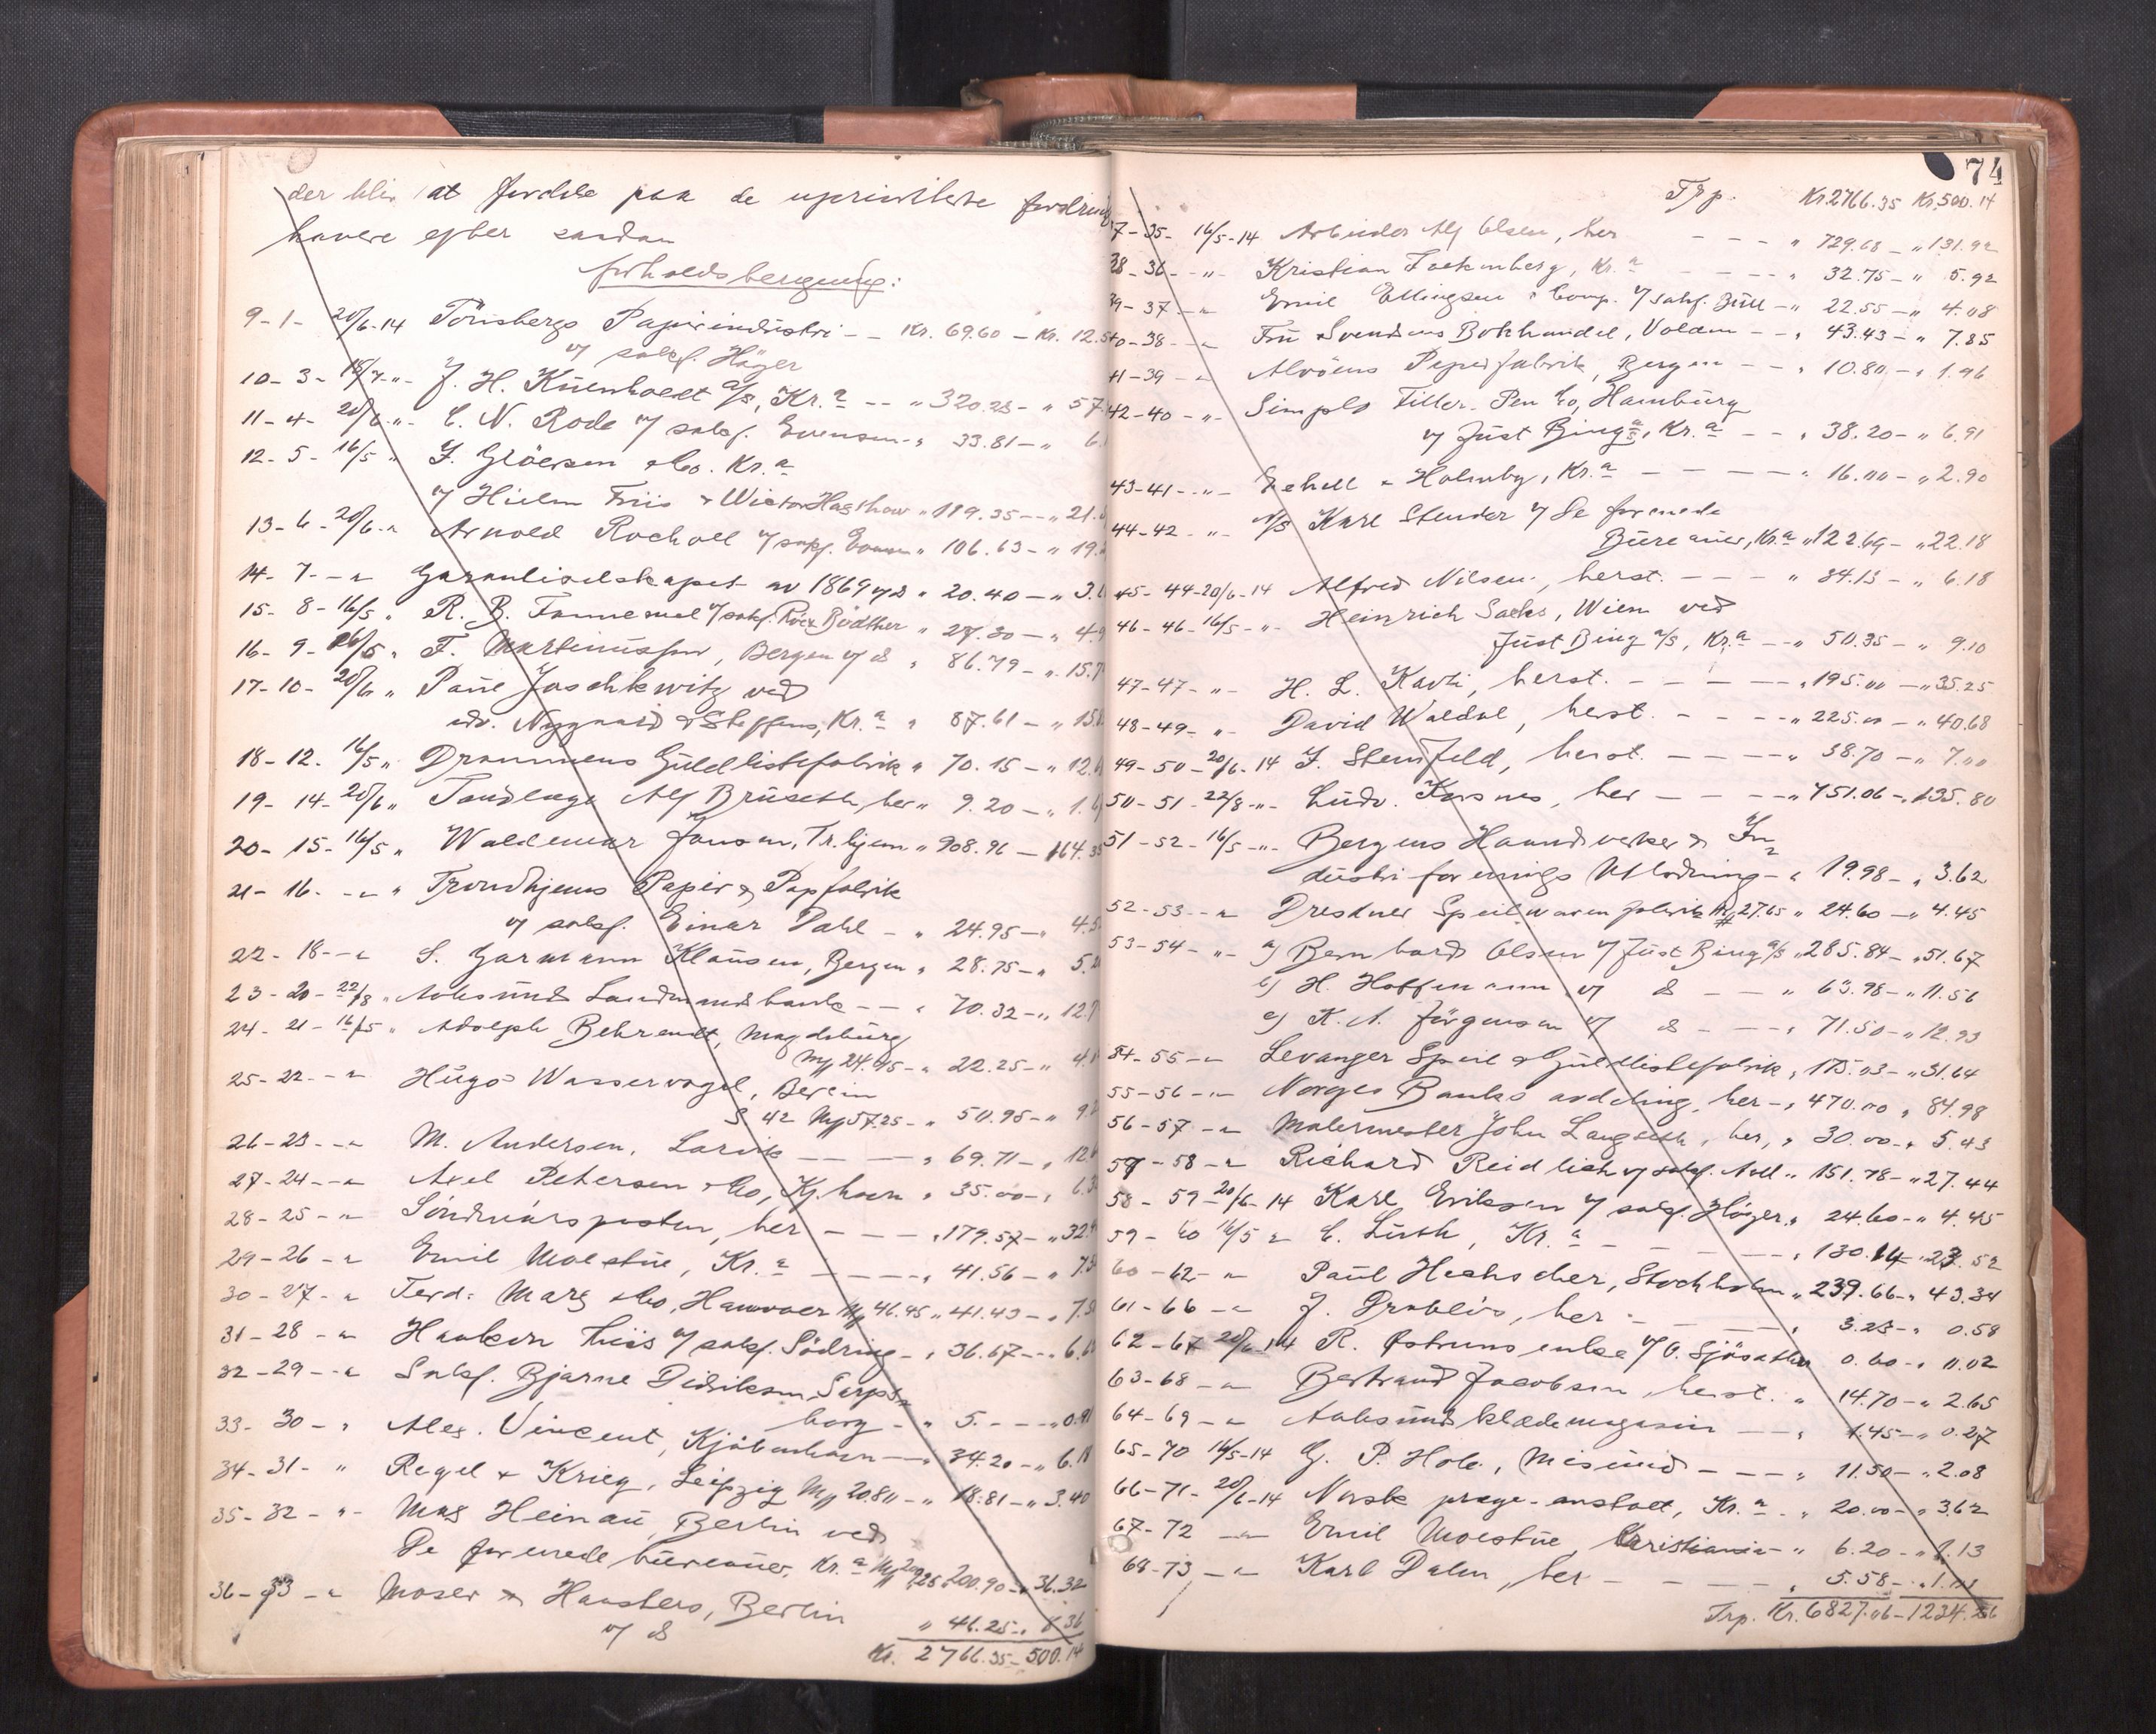 der blir at fordele paa de upriviligerte fordrings
havere efter saadan
forholdsberegning:
9-1- 20/6-14 Tönsbergs Papirindustri -- Kr. 69.60 - Kr. 12.5
v/ sakf. Höyer
10-3- 18/7 -"- J. H. Küenholdt a/s, Kr.a -- " 320.28 - " 57.
11-4- 20/6 -"- C. N. Rode v/ sakf. Evensen - " 33.81 - " 6.
12-5- 16/5 " J. Glöersen & Co. Kr.a
v/ Hielm Friis & Wictor Hagthow " 119.35 -- " 21.
13-6- 20/6 -" Arnold Rocholl v/ sakf. " 106.63 - " 19.
14-7- -" Garantiselskapet av 1869 v/ do " 20.40 - " 3.
15-8- 16/5 " R. B. v/ sakf. Roer Bödtker " 27.30 - " 4.9
16-9- 16/5 " F. Martinussen, Bergen v/ do " 86.79 - " 15.7
17-10- 20/6 " Paul Jaschkewitz ved
adv. Nygaard & Steffens, Kr.a " 87.61 - " 15.
18-12- 16/5 " Drammens Guldlistefabrik " 70.15 - " 12.
19-14- 20/6 " Tandlæge Alf Bruseth her " 9.20 - " 1.6
20-15- 16/5 " Waldemar Jansen, Tr.hjem " 908.96 - 164.35
21-16- -"- " Trondhjems Papir & Papfabrik
v/ sakf. Einar Dahl - " 24.95 - " 4.5
22-18- -" S. Garmann Klausen, Bergen " 28.75 - " 5.20
23-20- 22/8 " Aalesunds Landmandsbank -- " 70.32 - " 12.7
24-21- 16/5 " Adolph Behrendt, Magdeburg
M// 24.95 - " 22.25 - " 4.
25-22- -" Hugo Wasservogel, Berlin
S 42 M// 57.25 - " 50.95 - " 9.2
26-23- -" M. Andersen, Larvik -- -- " 69.71 - " 12.6
27-24- -" Axel Petersen & Co, Kj.havn " 35.00 - " 6.3
28-25- " Söndmörsposten, her - - - " 179.57 - " 32.4
29-26- " Emil Moestue, Kr.a ---- " 41.56 - " 7.5
30-27- " Ferd. Marx & Co, Hannover M// 46.45 " 41.43 - " 7.5
31-28- " Haakon Friis v/ sakf. Södring - " 36.67 - - 6.6
32-29- -" Sakf. Bjarne Didriksen Sarps-
borg - " 5. - - " 0.91
33-30- " Alex. Vincent, Kjöbenhavn -- " 34.20 - " 6.18
34-31- " Regel & Krieg, Leipzig M// 20.80 - " 18.81 - " 3.40
35-32- "- Max Heinau, Berlin ved
De forenede büreauer, Kr.a M// 225. 200.90 - " 36.32
36-33- " Moser & Berlin
v/ do " 46.25 - " 8.36
Kr. 2766.35 - 500.14
74
Trp. Kr. 2766.35 Kr. 500.14
37-35- 16/5-14 Arbeider Alf Olsen, her - - - " 729.68 - " 131.92
38-36- -"- Kristian Falkenberg, Kr.a - - - " 32.75 - " 5.92
39-37- " Emil Ellingsen & Comp. v/ sakf. Züll - " 22.55 - " 4.08
40-38- " Fru Svendsens Bokhandel, Volden - - " 43.43 - " 7.85
41-39- " Alvöens Papirfabrik, Bergen - - " 10.80 - " 1.96
42-40- "- Simplo Filler-Pen Co, Hamburg
v/ Just Bing a/s, Kr.a - - " 38.20 - " 6.91
43-41- "- & Holmby, Kr.a - - - - " 16.00 - " 2.90
44-42- "- A/S Karl Stender v/ De forenede
Büreauer, Kr.a " 122.69 - " 22.18
45-44- 20/6-14 Alfred Nilsen, herst. - - - " 34.13 - " 6.18
46-46- 16/5 -"- Heinrich Sachs, Wien ved
Just Bing a/s, Kr.a -- " 50.35 - " 9.10
47-47- "- H. L. Kavli, herst. - - - - " 195.00 - " 35.25
48-49- "- David Waldal, herst. - - - " 225.00 - " 40.68
49-50- 20/6-14 J. Steinfeld, herst. - - - - " 38.70 - " 7.00
50-51- 22/8 -"- Ludv. Korsnes, her - - - - " 751.06 - " 135.80
51-52- 16/5 -"- Bergens Haandverker & In-
dustriforenings Utlodning - " 19.98 - " 3.62
52-53- " Dresdner Speilwaren fabrik M// 27.65 " 24.60 - " 4.45
53-54- "- a) Bernhard Olsen v/ Just Bing a/s " 285.84 - " 51.67
b) H. Hoffmann v/ do - - " 63.98 - " 11.56
c) K. A. Jörgensen v/ do - - - " 71.50 - " 12.93
54-55- " Levanger Speil & Guldlistefabrik " 175.03 - " 31.64
55-56- " Norges Banks avdeling, her - " 470.00 " 84.98
56-57- " Malermester John Langseth, her, " 30.00 - " 5.43
57-58- " Richard Reidlich v/ sakf. Noll " 151.78 - " 27.44
58-59- 20/6-14 Karl Eriksen v/ sakf. Höyer " 24.60 - " 4.45
59-60 16/5 " C. Lüth, Kr.a - - - - " 130.14 - 23.52
60-62- " Paul Heckscher, Stockholm " 239.66 - " 43.34
61-66- " J. Drabløs, her - - - - " 3.23 - " 0.58
62-67 20/6-14 R. Østrems enke v/ O. Sjösæther 0.60 - " 0.02
63-68- " Bertrand Jacobsen, herst. " 14.70 - " 2.65
64-69- " Aalesunds klædemagasin -- " 1.45 - " 0.27
65-70 16/5-14 G. P. Hole, Misund - - - " 11.50 - " 2.08
66-71- 20/6-14 Norsk præge-anstalt, Kr.a - " 20.00 - " 3.62
67-72 -"- Emil Moestue, Kristiania - " 6.20 - " 1.13
68-73- " Karl Dalen, her - - - - " 5.58 - " 1.01
Trp. Kr. 6827.06 - 1234.26